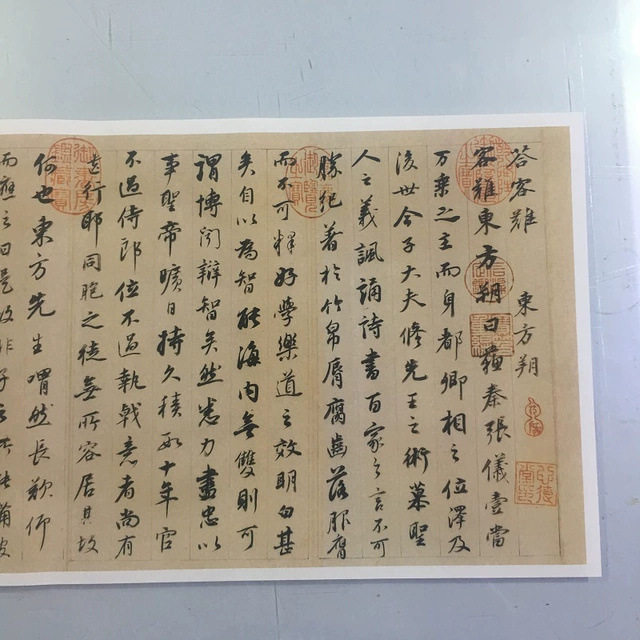 答客難 東方朔
客難東方朔曰蘇秦張儀壹當
万乘之主而身都卿相之位澤及
後世今子大夫修先王之術慕聖
人之義諷誦詩書百家之言不可
勝紀著於竹帛脣腐齒落服膺
而不可釋好學樂道之效明白甚
矣自以為智能海內無雙則可
謂博聞辯智矣然悉力盡忠以
事聖帝曠日持久積數十年官
不過侍郎位不過執戟意者尚有
遺行耶同胞之徒無所容居其故
何也東方先生喟然長歎仰
而應之曰是故非子之所能備彼